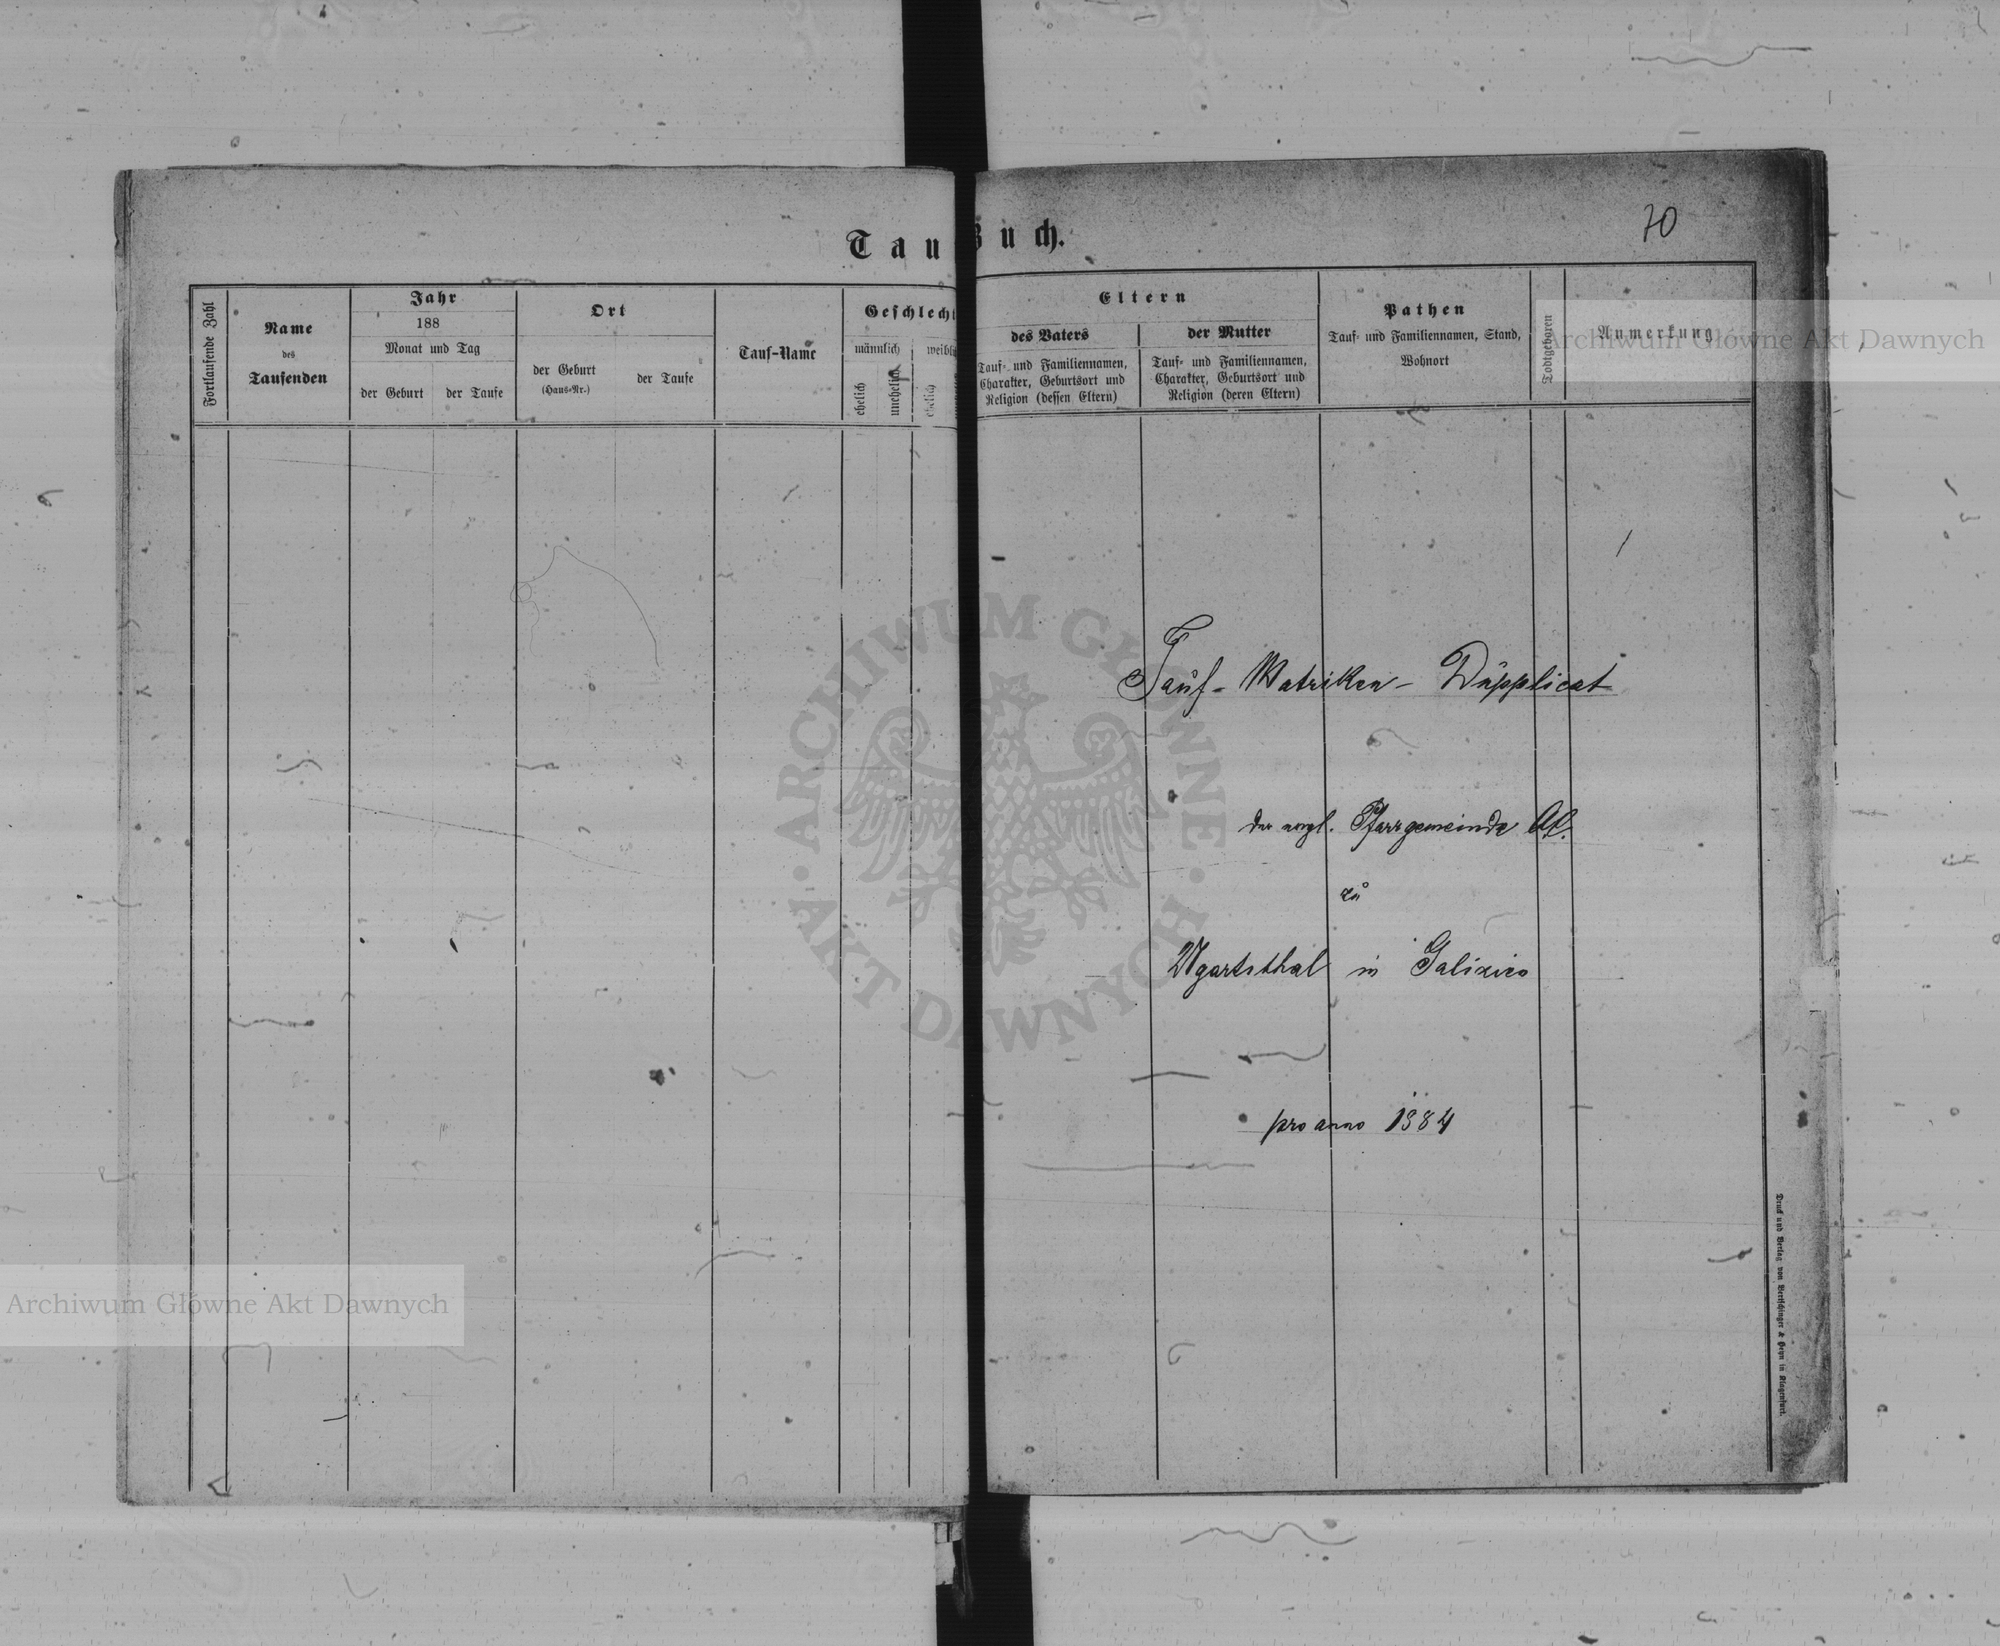 Tauf-Buch.
70
Fortlaufende Zahl
Name
des
Taufenden
Jahr
188
Monat und Tag
der Geburt
der Taufe
Ort
der Geburt
(Haus-Nr.)
der Taufe
Tauf-Name
Geschlecht
männlich
weibli
ehelich
unehelich
ehelich
Eltern
des Vaters
Tauf- und Familiennamen,
Charakter, Geburtsort und
Religion (dessen Eltern)
der Mutter
Tauf- und Familiennamen,
Charakter, Geburtsort und
Religion (deren Eltern)
Pathen
Tauf- und Familiennamen, Stand,
Wohnort
Todtgeboren
Anmerkung
Tauf-Matriken-Dupplicat
der evgl. Pfarrgemeinde AC.
zu
Ugartsthal in Galizien
pro anno 1884
Druck und Verlag von Bertschinger & Heyn in Klagenfurt.
ARCHIWUM GŁÓWNE AKT DAWNYCH
Archiwum Główne Akt Dawnych
Archiwum Główne Akt Dawnych